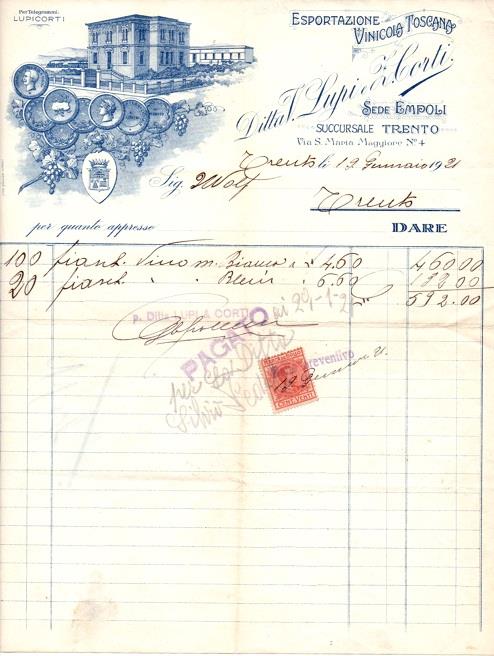 Per Telegrammi:
LUPICORTI
ESPORTAZIONE
VINICOLA TOSCANA
Ditta V. Lupi & Corti.
SEDE EMPOLI
SUCCURSALE TRENTO
Via S. Maria Maggiore Nº 4
Trento li 12 Gennaio 1921
Sig. Wolf
Trento
per quanto appresso
DARE
100 fiaschi Vino m. Bianco a 4.60 460.00
20 fiaschi " " 6.60 132.00
592.00
p. Ditta LUPI & CORTI
PAGATO ai 29-1-21
per la Ditta
Silvio
Preventivo
12
CENT. VENTI